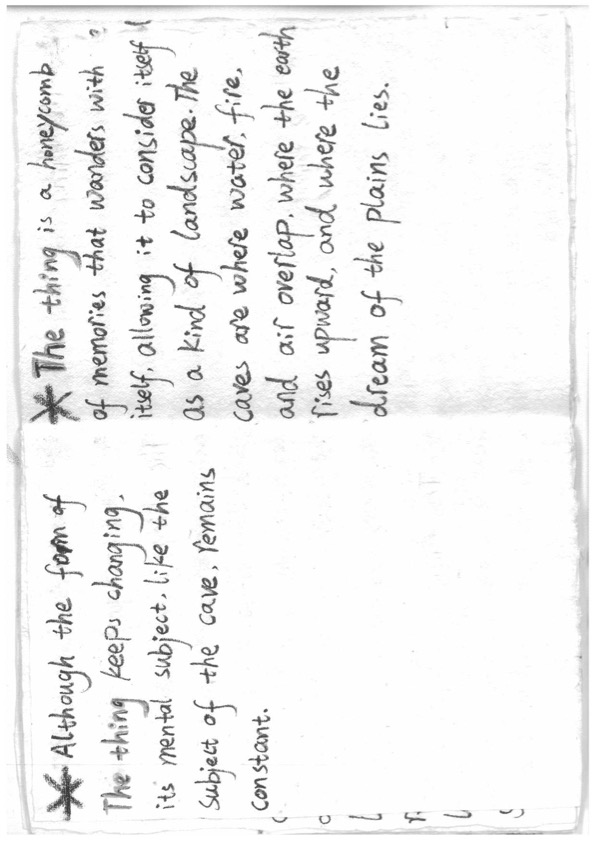 * Although the form of
The thing keeps changing,
its mental subject, like the
subject of the cave, remains
constant.
* The thing is a honeycomb
of memories that wanders with
itself, allowing it to consider itself
as a kind of landscape. The
caves are where water, fire,
and air overlap, where the earth
rises upward, and where the
dream of the plains lies.